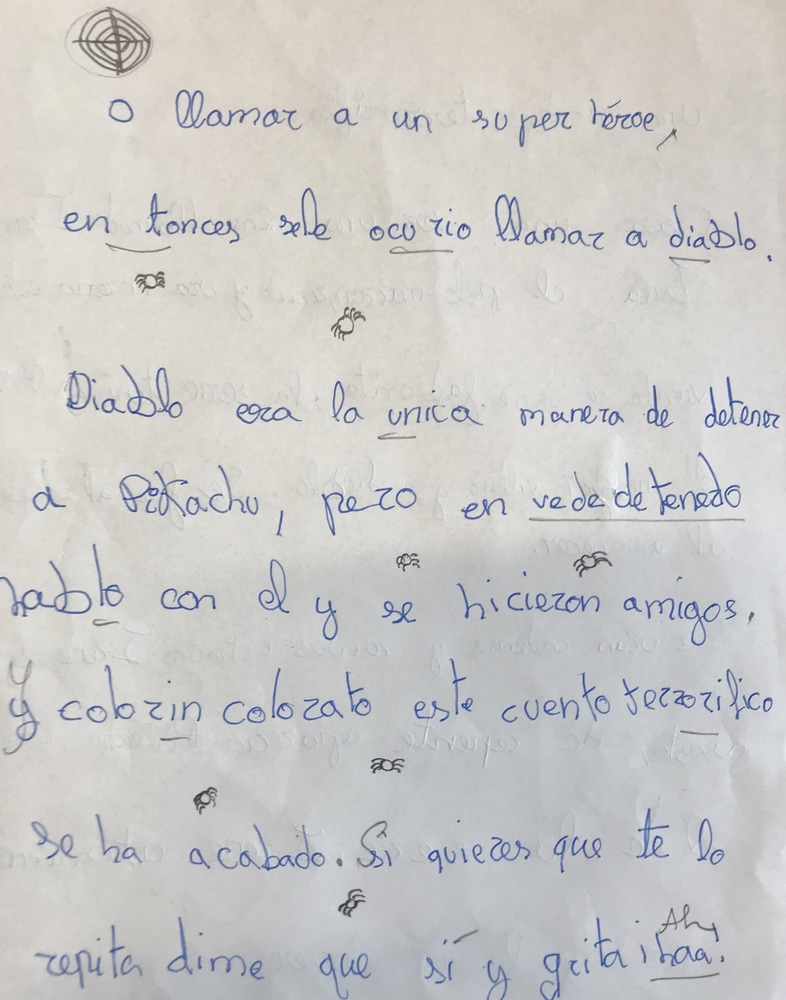 O llamar a un super héroe,
en tonces sele ocurio llamar a diablo.
Diablo era la unica manera de detener
a Pikachu, pero en vede detenedo
hablo con el y se hicieron amigos.
y colorin colorato este cuento terrorifico
se ha acabado. Si quieres que te lo
Ah
repita dime que sí y grita ¡haa!